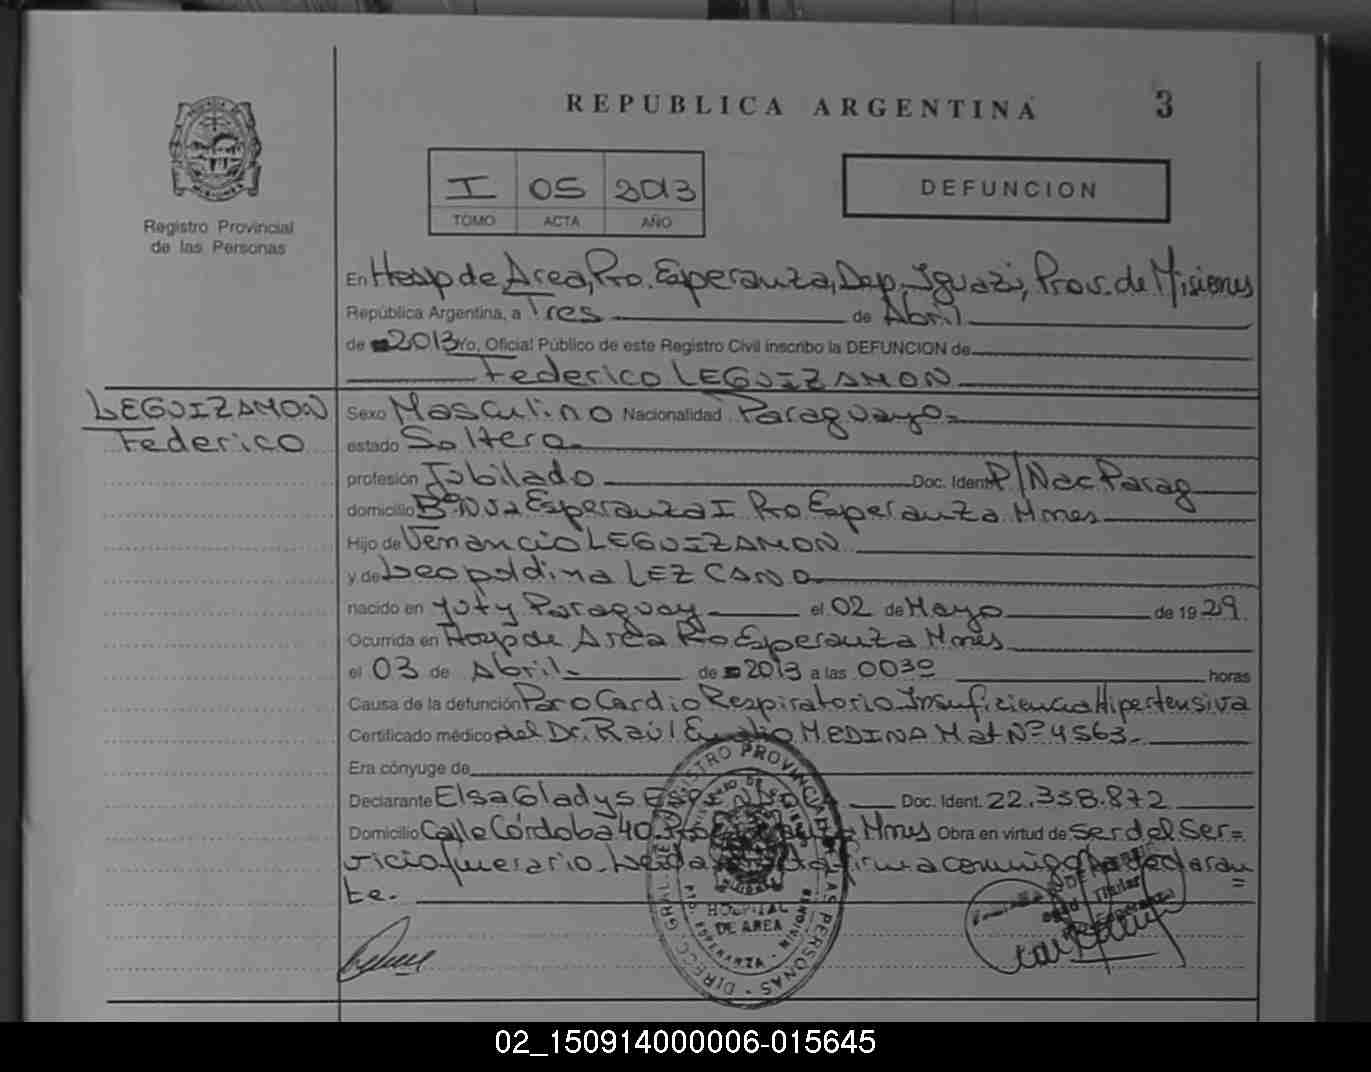 REPUBLICA ARGENTINA 3
I 05 2013
TOMO ACTA AÑO
DEFUNCION
Registro Provincial
de las Personas
En Hosp de Area, Pto. Esperanza, Dep. Iguazú, Prov. de Misiones
República Argentina, a Tres de Abril
de 2013 Yo, Oficial Público de este Registro Civil inscribo la DEFUNCION de
Federico LEGUIZAMON
LEGUIZAMON
Federico
Sexo Masculino Nacionalidad Paraguayo=
estado Soltero
profesión Jubilado Doc. Ident. P/Nac Parag
domicilio Bº Nva Esperanza I Pto Esperanza Mnes
Hijo de Venancio LEGUIZAMON
y de Leopoldina LEZCANO
nacido en Yuty Paraguay el 02 de Mayo de 1929
Ocurrida en Hosp de Area Pto Esperanza Mnes
el 03 de Abril de 2013 a las 0030 horas
Causa de la defunción Paro Cardio Respiratorio Insuficiencia Hipertensiva
Certificado médico del Dr. Raúl MEDINA Mat Nº 4563
Era cónyuge de
Declarante Elsa Gladys Doc. Ident. 22.358.872
Domicilio Calle Córdoba 40 Mnes Obra en virtud de ser del Ser=
vicio funerario. firma conmigo la declaran=
te.
DIREC. GRAL. REGISTRO PROVINCIAL DE LAS PERSONAS
HOSPITAL
DE AREA
PTO. ESPERANZA - MISIONES
Titular
02_150914000006-015645